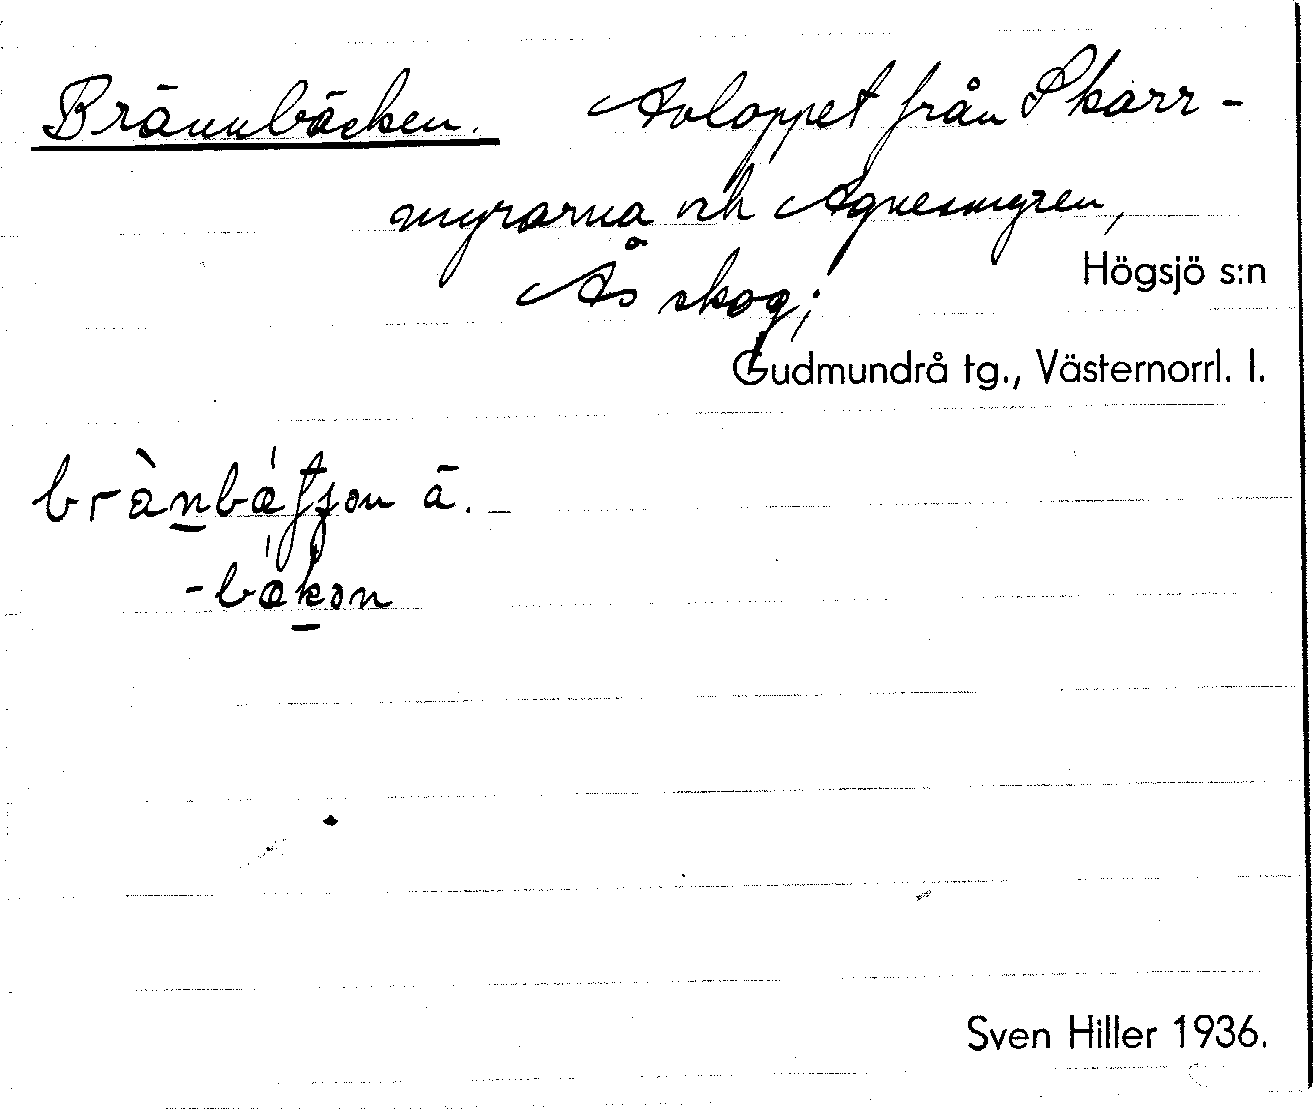 Brännbäcken. Avloppet från Skarr-
myrarna och Agnesmyren,
Ås skog;
Högsjö s:n
Gudmundrå tg., Västernorrl. l.
ä. -
Sven Hiller 1936.